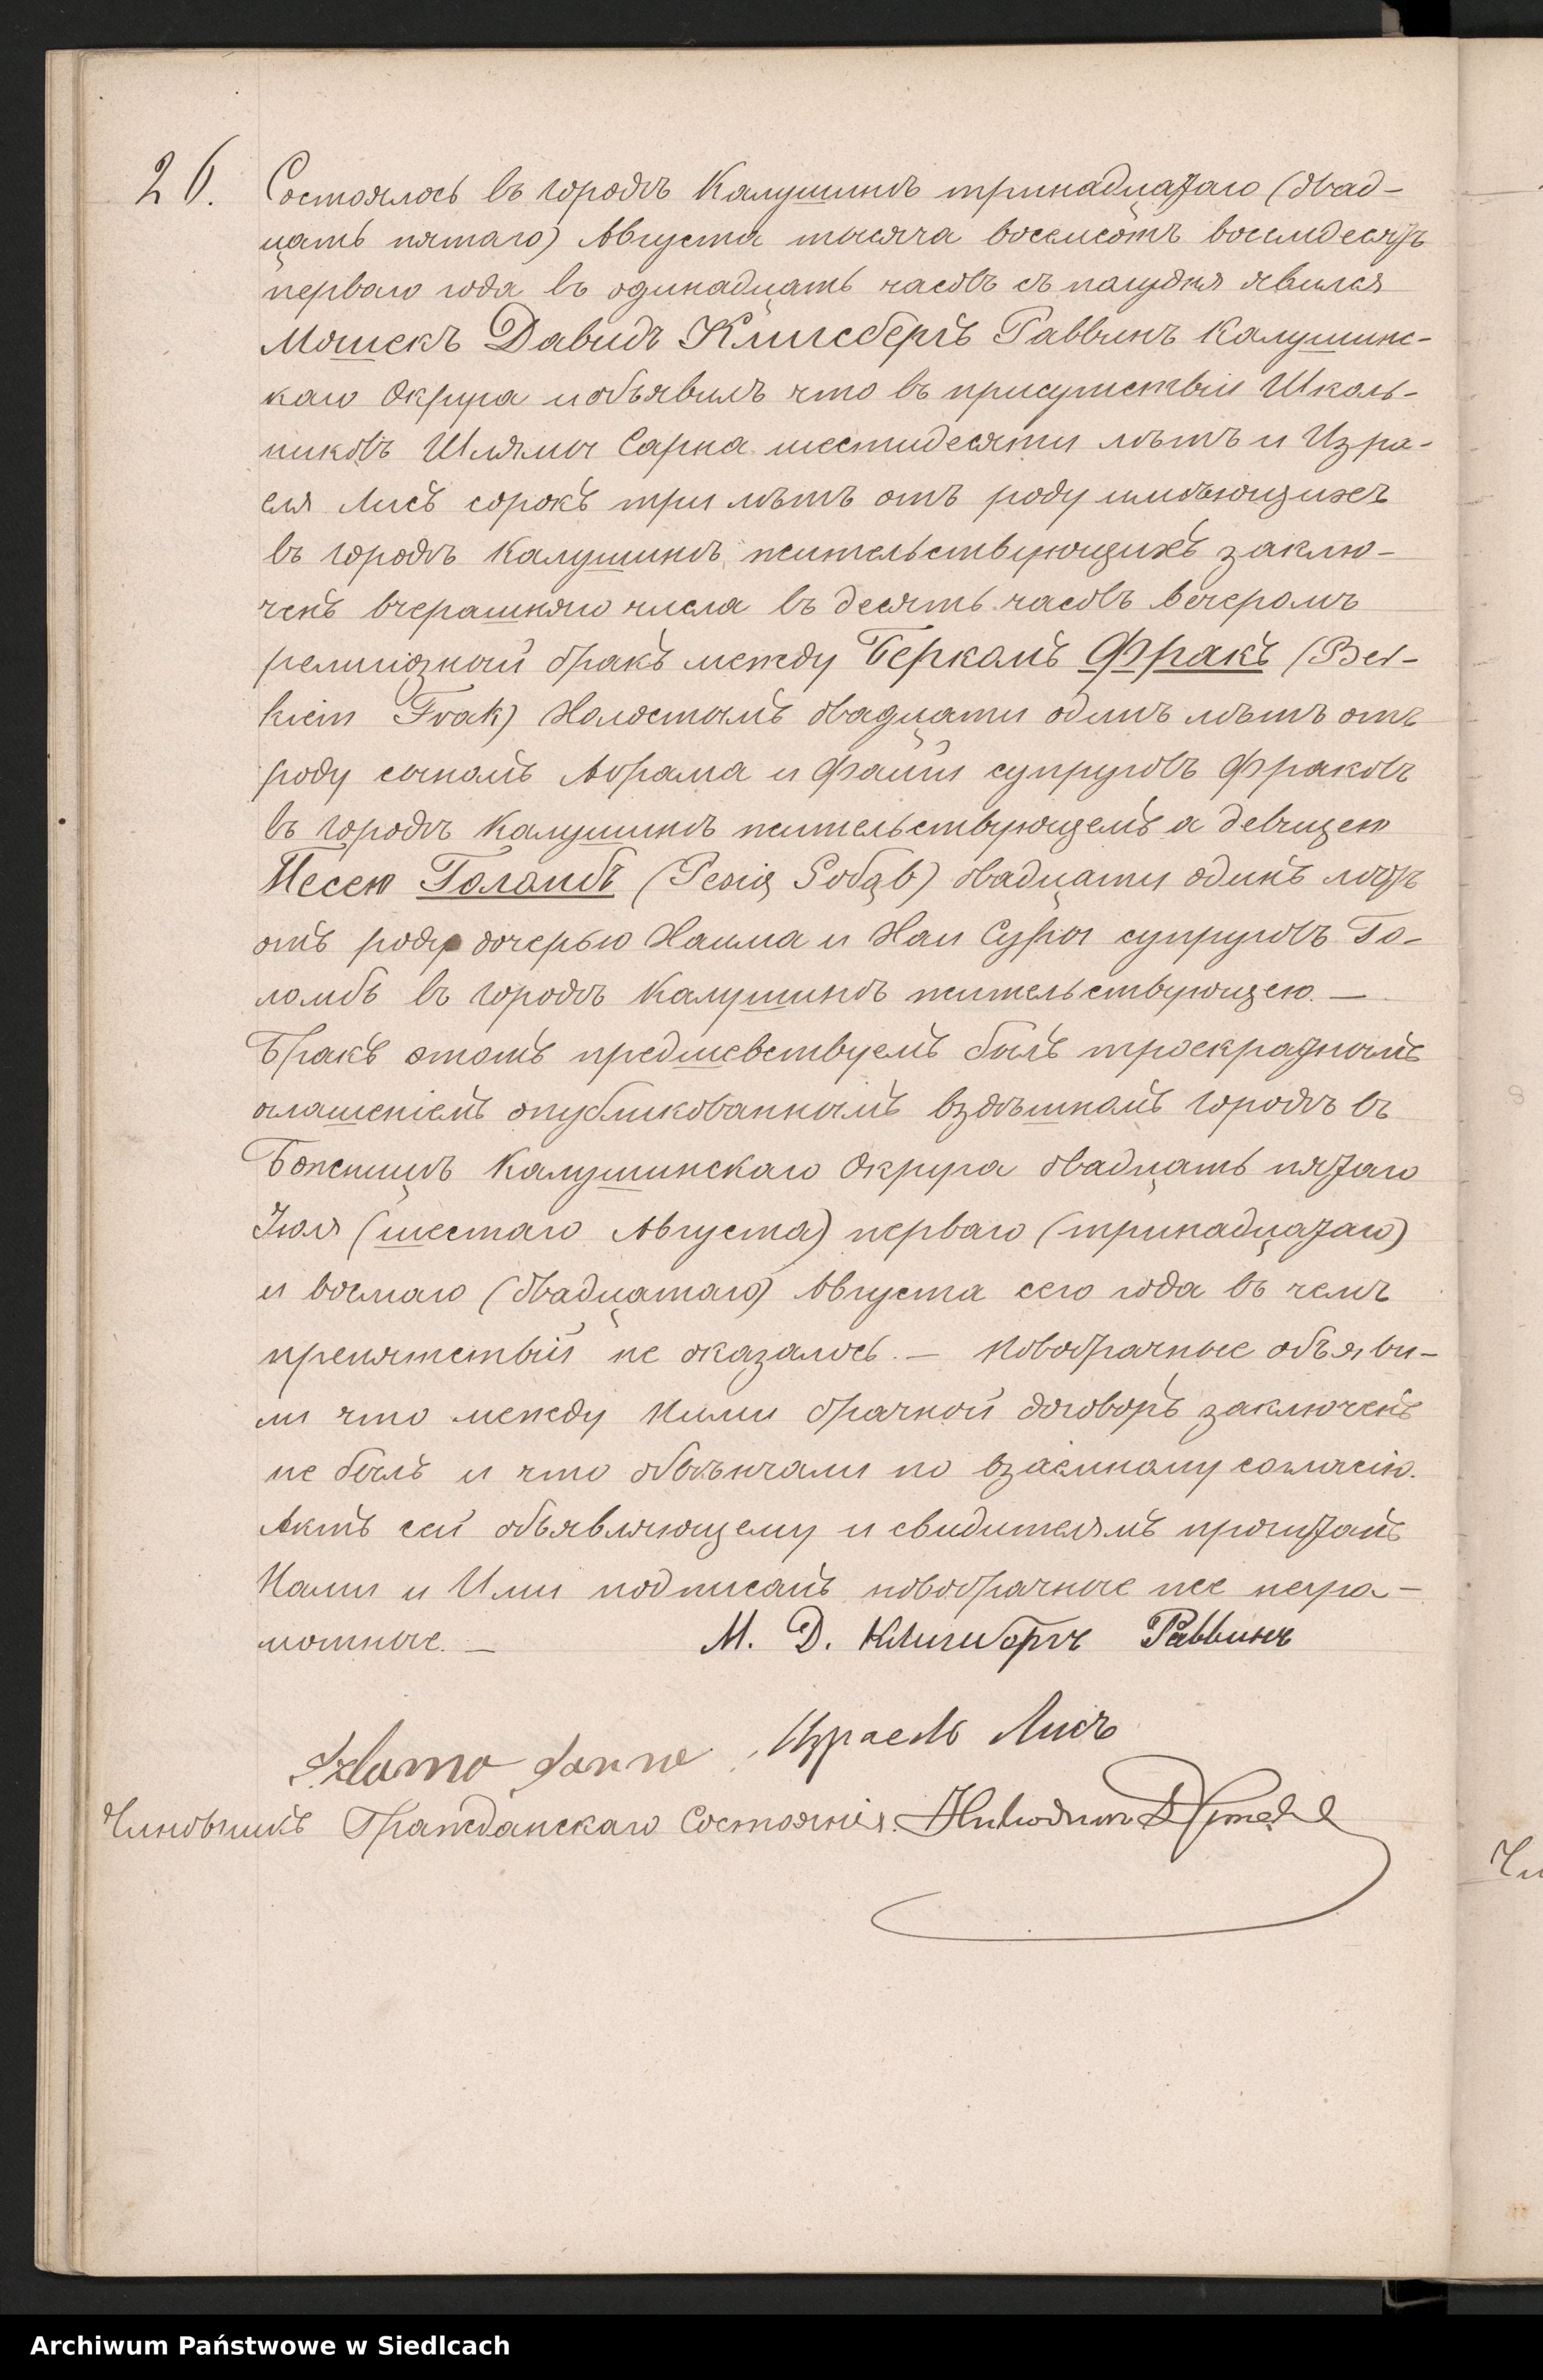 26. Состоялось въ городѣ Калушинѣ тринадцатаго (двад-
цать пятаго) Августа тысяча восемсотъ восемдесятъ
перваго года въ одинадцать часовъ съ полудня явился
Мошекъ Давидъ Клигсбергъ Раввинъ Калушинс-
каго Округа и объявилъ что въ присутствіи Школь-
никовъ Шлямы Сарна шестидесяти лѣтъ и Изра-
еля Лисъ сорокъ три лѣтъ отъ роду имѣющихъ
въ городѣ Калушинѣ жительствующихъ заклю-
ченъ вчерашняго числа въ десять часовъ вечеромъ
религіозный бракъ между Беркомъ Фракъ (Ber-
kiem Frak) Холостымъ двадцати одинъ лѣтъ отъ
роду сыномъ Абрама и Файги супруговъ Фраковъ
въ городѣ Калушинѣ жительствующемъ а девицею
Песею Голомбъ (Pesią Gołąb) двадцати одинъ лѣтъ
отъ роду дочерью Хаима и Хаи Суры супруговъ Го-
ломбъ въ городѣ Калушинѣ жительствующею. —
Бракъ этотъ предшевствуемъ былъ троекратнымъ
оглашеніемъ опубликованнымъ вздѣшномъ городѣ въ
Божницѣ Калушинскаго Округа двадцать пятаго
Іюля (шестаго Августа) перваго (тринадцатаго)
и восмаго (двадцатаго) Августа сего года въ чемъ
препятствій не оказалось. — Новобрачные объяви-
ли что между Ними брачной договоръ заключенъ
не былъ и что обвѣнчали по взаимному согласію.
Актъ сей объявляющему и свидителямъ прочитанъ
Нами и Ими подписанъ новобрачные же негра-
мотные. — М. Д. Клигсбергъ Раввинъ
Израель Лисъ
Szlama Sarna
Чиновникъ Гражданскаго Состоянія